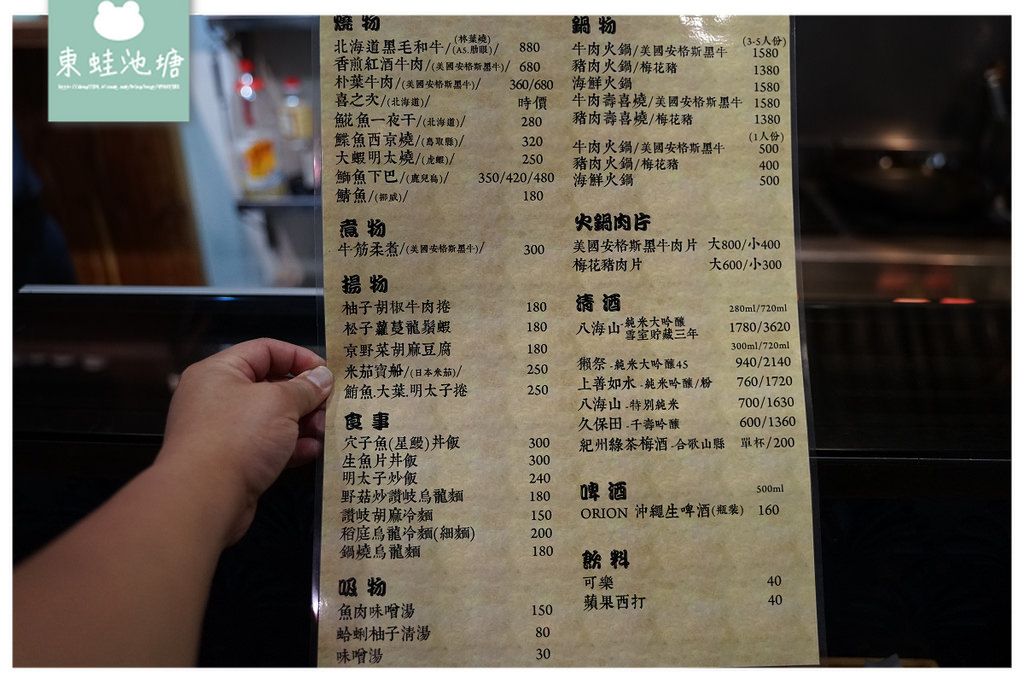 東蛙池塘
燒物
北海道黑毛和牛/(林葉燒)(A5.肋眼)/ 880
香煎紅酒牛肉/(美國安格斯黑牛)/ 680
朴葉牛肉/(美國安格斯黑牛)/ 360/680
喜之次/(北海道)/ 時價
鯤魚一夜干/(北海道)/ 280
鰈魚西京燒/(鳥取縣)/ 320
大蝦明太燒/(虎蝦)/ 250
鰤魚下巴/(鹿兒島)/ 350/420/480
鯖魚/(挪威)/ 180
煮物
牛筋柔煮/(美國安格斯黑牛)/ 300
揚物
柚子胡椒牛肉捲 180
松子蘿蔓龍鬚蝦 180
京野菜胡麻豆腐 180
米茄寶船/(日本米茄)/ 250
鮪魚.大葉.明太子捲 250
食事
穴子魚(星鰻)丼飯 300
生魚片丼飯 300
明太子炒飯 240
野菇炒讚岐烏龍麵 180
讚岐胡麻冷麵 150
稻庭烏龍冷麵(細麵) 200
鍋燒烏龍麵 180
吸物
魚肉味噌湯 150
蛤蜊柚子清湯 80
味噌湯 30
鍋物
(3-5人份)
牛肉火鍋/美國安格斯黑牛 1580
豬肉火鍋/梅花豬 1380
海鮮火鍋 1580
牛肉壽喜燒/美國安格斯黑牛 1580
豬肉壽喜燒/梅花豬 1380
(1人份)
牛肉火鍋/美國安格斯黑牛 500
豬肉火鍋/梅花豬 400
海鮮火鍋 500
火鍋肉片
美國安格斯黑牛肉片 大800/小400
梅花豬肉片 大600/小300
清酒
280ml/720ml
八海山 純米大吟釀 雪室貯藏三年 1780/3620
300ml/720ml
獺祭 -純米大吟釀45 940/2140
上善如水 -純米吟釀/粉 760/1720
八海山 -特別純米 700/1630
久保田 -千壽吟釀 600/1360
紀州綠茶梅酒 -合歌山縣 單杯/200
啤酒
500ml
ORION 沖繩生啤酒(瓶裝) 160
飲料
可樂 40
蘋果西打 40